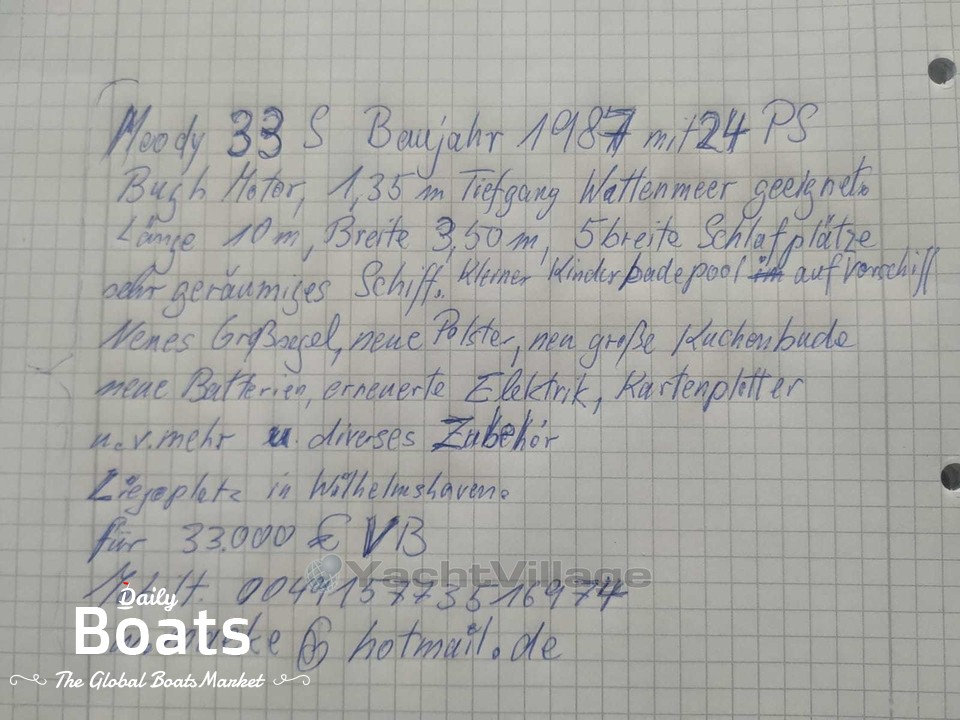 Moody 33 S Baujahr 1987 mit 24 PS
Bugh Motor, 1,35 m Tiefgang Wattenmeer geeignet.
Länge 10 m, Breite 3,50 m, 5 breite Schlafplätze
sehr geräumiges Schiff. Kleiner Kinderbadepool auf Vorschiff
Neues Großsegel, neue Polster, neu große Kuchenbude
neue Batterien, erneuerte Elektrik, Kartenplotter
u.v.mehr u. diverses Zubehör
Liegeplatz in Wilhelmshaven.
für 33.000 € VB
YachtVillage
004915773516974
Daily
Boats
@ hotmail.de
The Global Boats Market